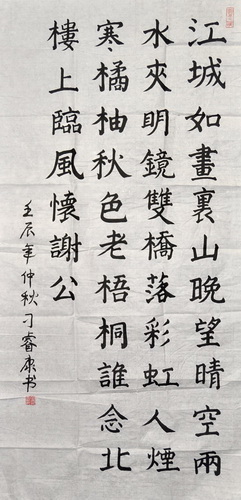 江城如畫裏山晚望晴空兩
水夾明鏡雙橋落彩虹人煙
寒橘柚秋色老梧桐誰念北
樓上臨風懷謝公
壬辰年仲秋刁睿康书